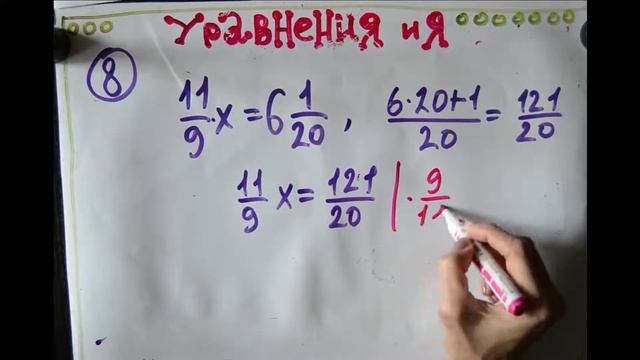 Уравнения и я.
8
11/9 · x = 6 1/20 , (6·20+1)/20 = 121/20
11/9 x = 121/20 | · 9/11